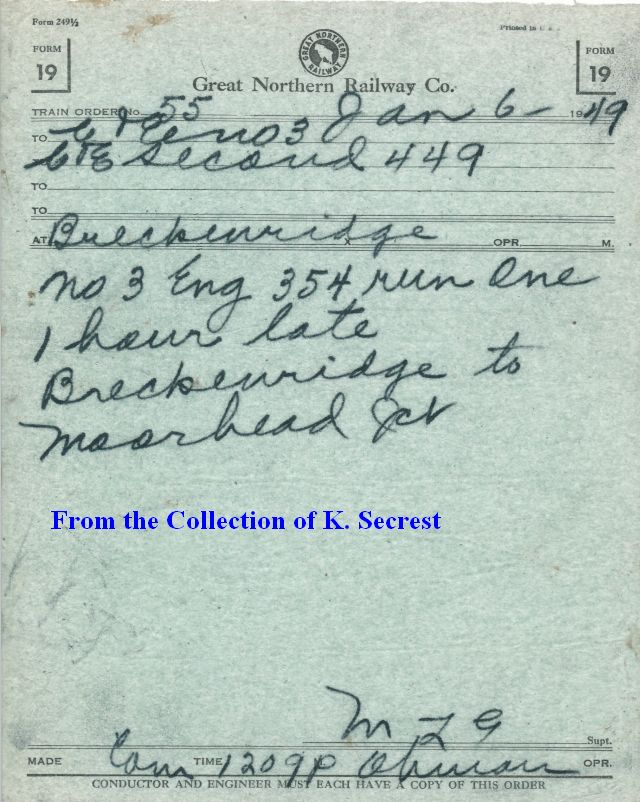 Form 249½
Printed in U. S. A.
FORM 19
GREAT NORTHERN RAILWAY
FORM 19
Great Northern Railway Co.
TRAIN ORDER No. 55 Jan 6- 1949
TO C&E No 3
TO C&E Second 449
TO
TO
AT Breckenridge X OPR. M.
No 3 Eng 354 run One
1 hour late
Breckenridge to
Moorhead Jct
From the Collection of K. Secrest
Supt.
MADE Com TIME 1209P OPR.
CONDUCTOR AND ENGINEER MUST EACH HAVE A COPY OF THIS ORDER